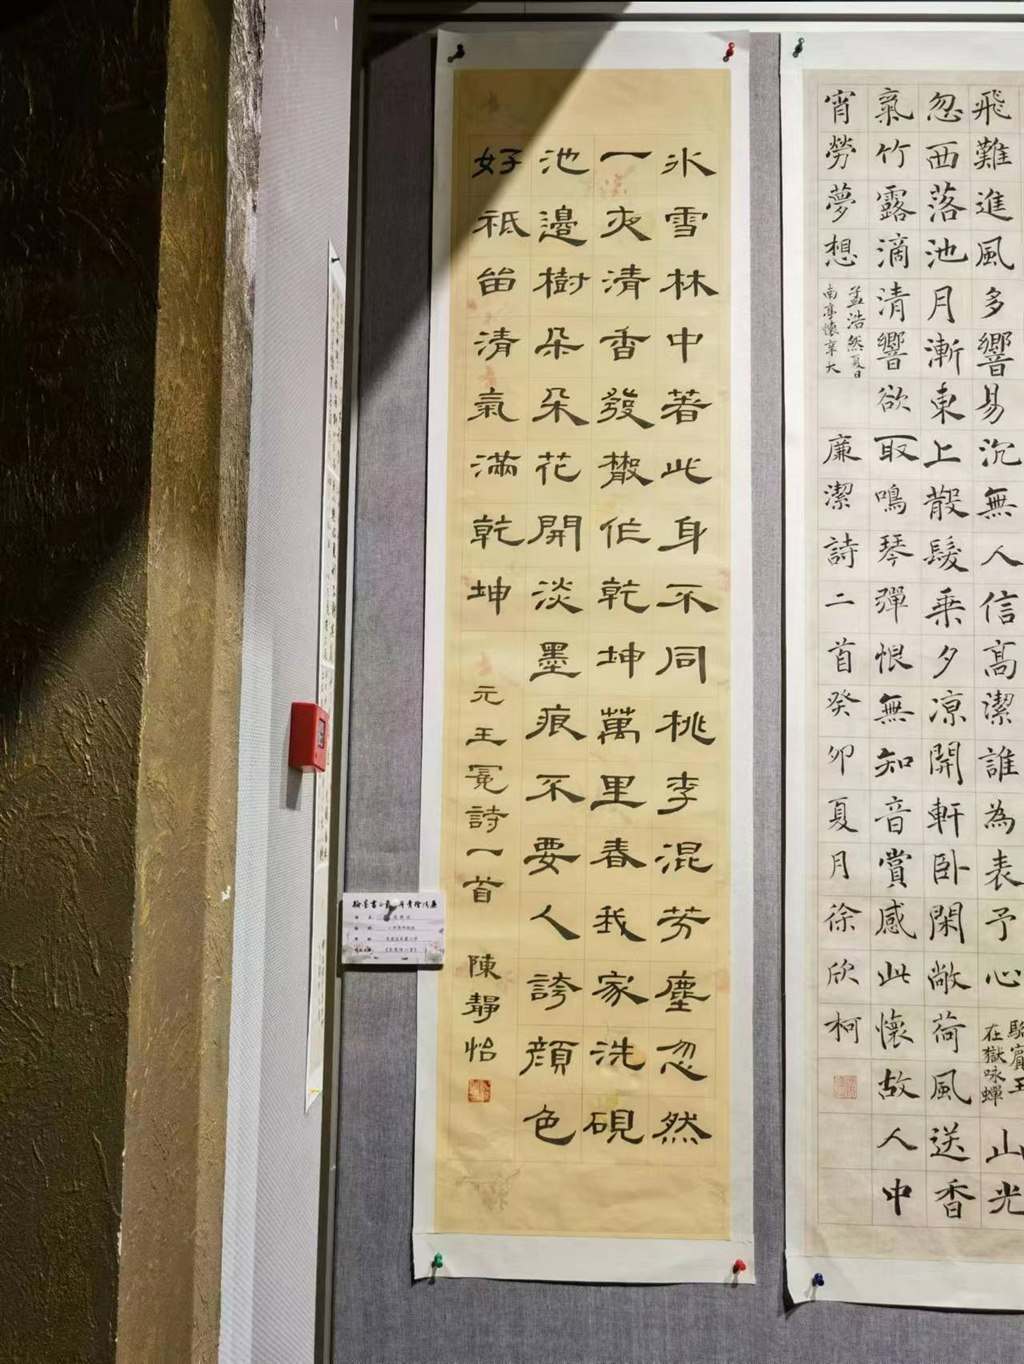 飛難進風多響易沉無人信高潔誰為表予心
駱賓王
在獄咏蟬
山光
忽西落池月漸東上散髮乘夕凉開軒卧閑敞荷風送香
氣竹露滴清響欲取鳴琴彈恨無知音賞感此懷故人中
宵勞夢想
孟浩然夏日
南亭懷辛大
廉潔詩二首癸卯夏月徐欣柯
氷雪林中著此身不同桃李混芳塵忽然
一夜清香發散作乾坤萬里春我家洗硯
池邊樹朵朵花開淡墨痕不要人誇顏色
好祗留清氣滿乾坤 元王冕詩一首 陳靜怡